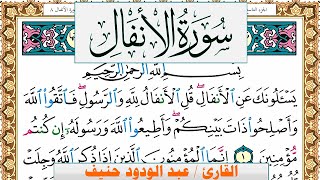 سورة الأنفال
بِسْمِ اللَّهِ الرَّحْمَٰنِ الرَّحِيمِ
يَسْـَٔلُونَكَ عَنِ ٱلْأَنفَالِ ۖ قُلِ ٱلْأَنفَالُ لِلَّهِ وَٱلرَّسُولِ ۖ فَٱتَّقُوا۟ ٱللَّهَ
وَأَصْلِحُوا۟ ذَاتَ بَيْنِكُمْ ۖ وَأَطِيعُوا۟ ٱللَّهَ وَرَسُولَهُۥٓ إِن كُنتُم
مُّؤْمِنِينَ ١ إِنَّمَا ٱلْمُؤْمِنُونَ ٱلَّذِينَ إِذَا ذُكِرَ ٱللَّهُ وَجِلَتْ
القارئ / عبد الودود حنيف